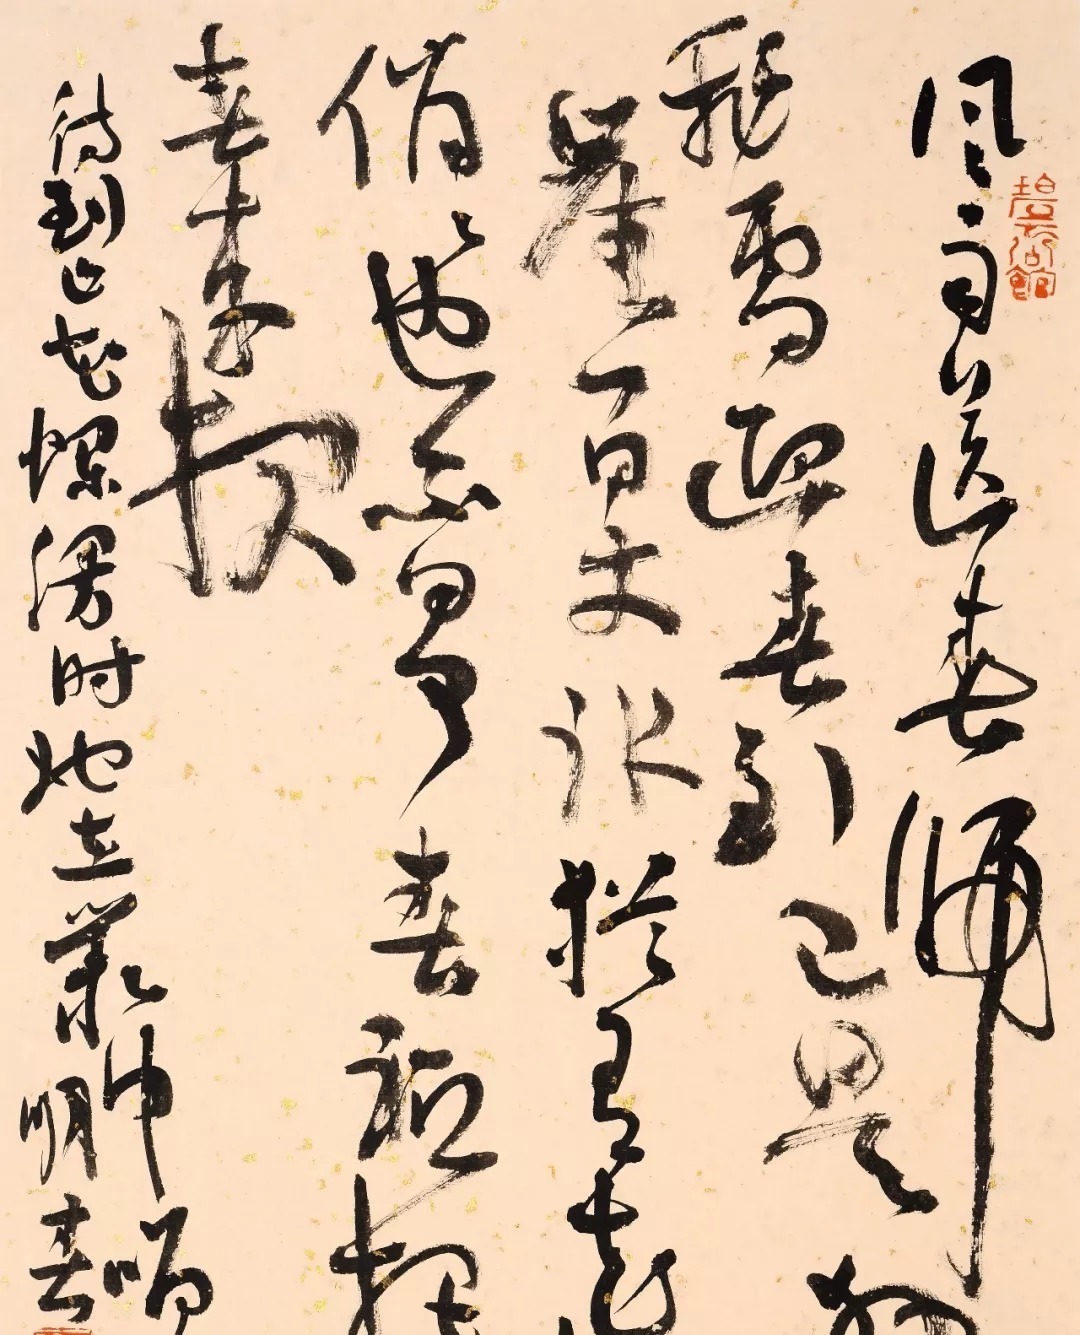 风雨送春归
飛雪迎春到已是
崖百丈冰猶有花
俏俏也不争春祇把
春来报
待到山花爛漫时她在叢中咲
明春